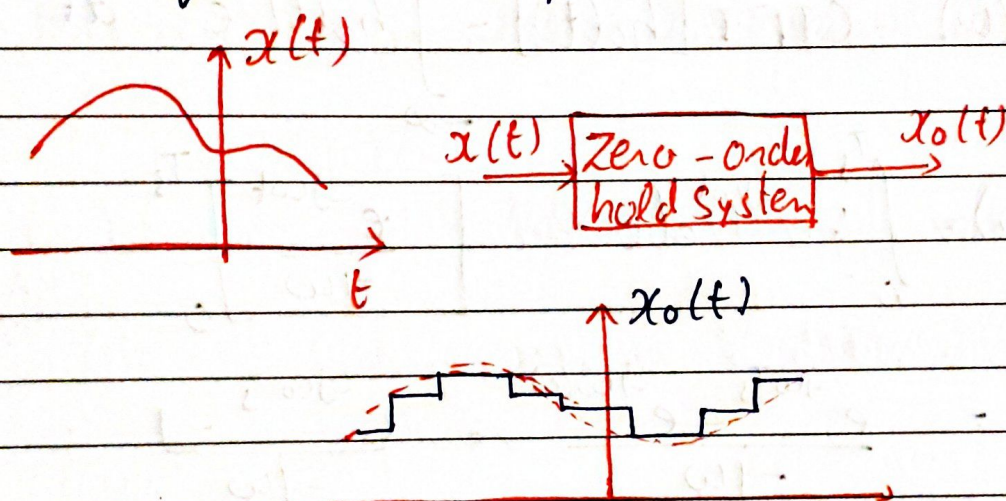 x(t)
x(t)
Zero-order
hold system
x₀(t)
t
x₀(t)